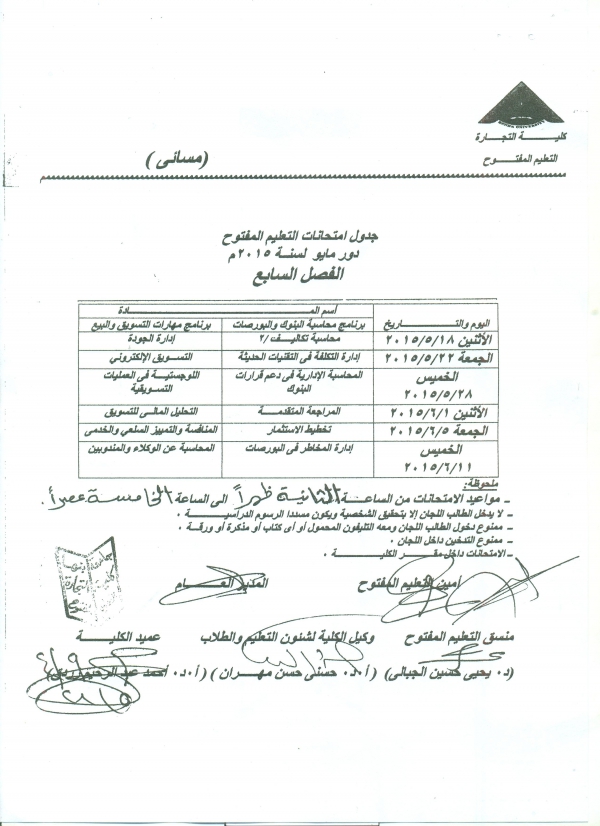 BENHA UNIVERSITY
كليـــة التجـارة
التعليم المفتـــوح
(مسائى)
جدول امتحانات التعليم المفتوح
دور مايو لسنة ٢٠١٥م
الفصل السابع
اليوم والتــــاريخ
أسم المــــــادة
برنامج محاسبة البنوك والبورصات
برنامج مهارات التسويق والبيع
الأثنين ٢٠١٥/٥/١٨
محاسبة تكاليف /٢
إدارة الجودة
الجمعة ٢٠١٥/٥/٢٢
إدارة التكلفة فى التقنيات الحديثة
التسويق الإلكتروني
الخميس
٢٠١٥/٥/٢٨
المحاسبة الإدارية فى دعم قرارات
البنوك
اللوجستية فى العمليات
التسويقية
الأثنين ٢٠١٥/٦/١
المراجعة المتقدمـــة
التحليل المالى للتسويق
الجمعة ٢٠١٥/٦/٥
تخطيط الاستثمار
المنافسة والتمييز السلعي والخدمى
الخميس
٢٠١٥/٦/١١
إدارة المخاطر فى البورصات
المحاسبة عن الوكلاء والمندوبين
ملحوظة:
ـ مواعيد الامتحانات من الساعـة الثانية ظهراً الى الساعة الخامسة عصراً.
ـ لا يدخل الطالب اللجان إلا بتحقيق الشخصية ويكون مسددا الرسوم الدراسيـــة .
ـ ممنوع دخول الطالب اللجان ومعه التليفون المحمول أو أى كتاب أو مذكرة أو ورقة .
ـ ممنوع التدخين داخل اللجان .
ـ الامتحانات داخل مقــر الكليـــة .
أمين التعليم المفتوح
المدير العـــام
منسق التعليم المفتوح
وكيل الكلية لشئون التعليم والطلاب
عميد الكليـــة
(د. يحيى حسين الجبالى)
(أ.د. حسنى حسن مهران)
(أ.د. أحمد عبد الرحيم